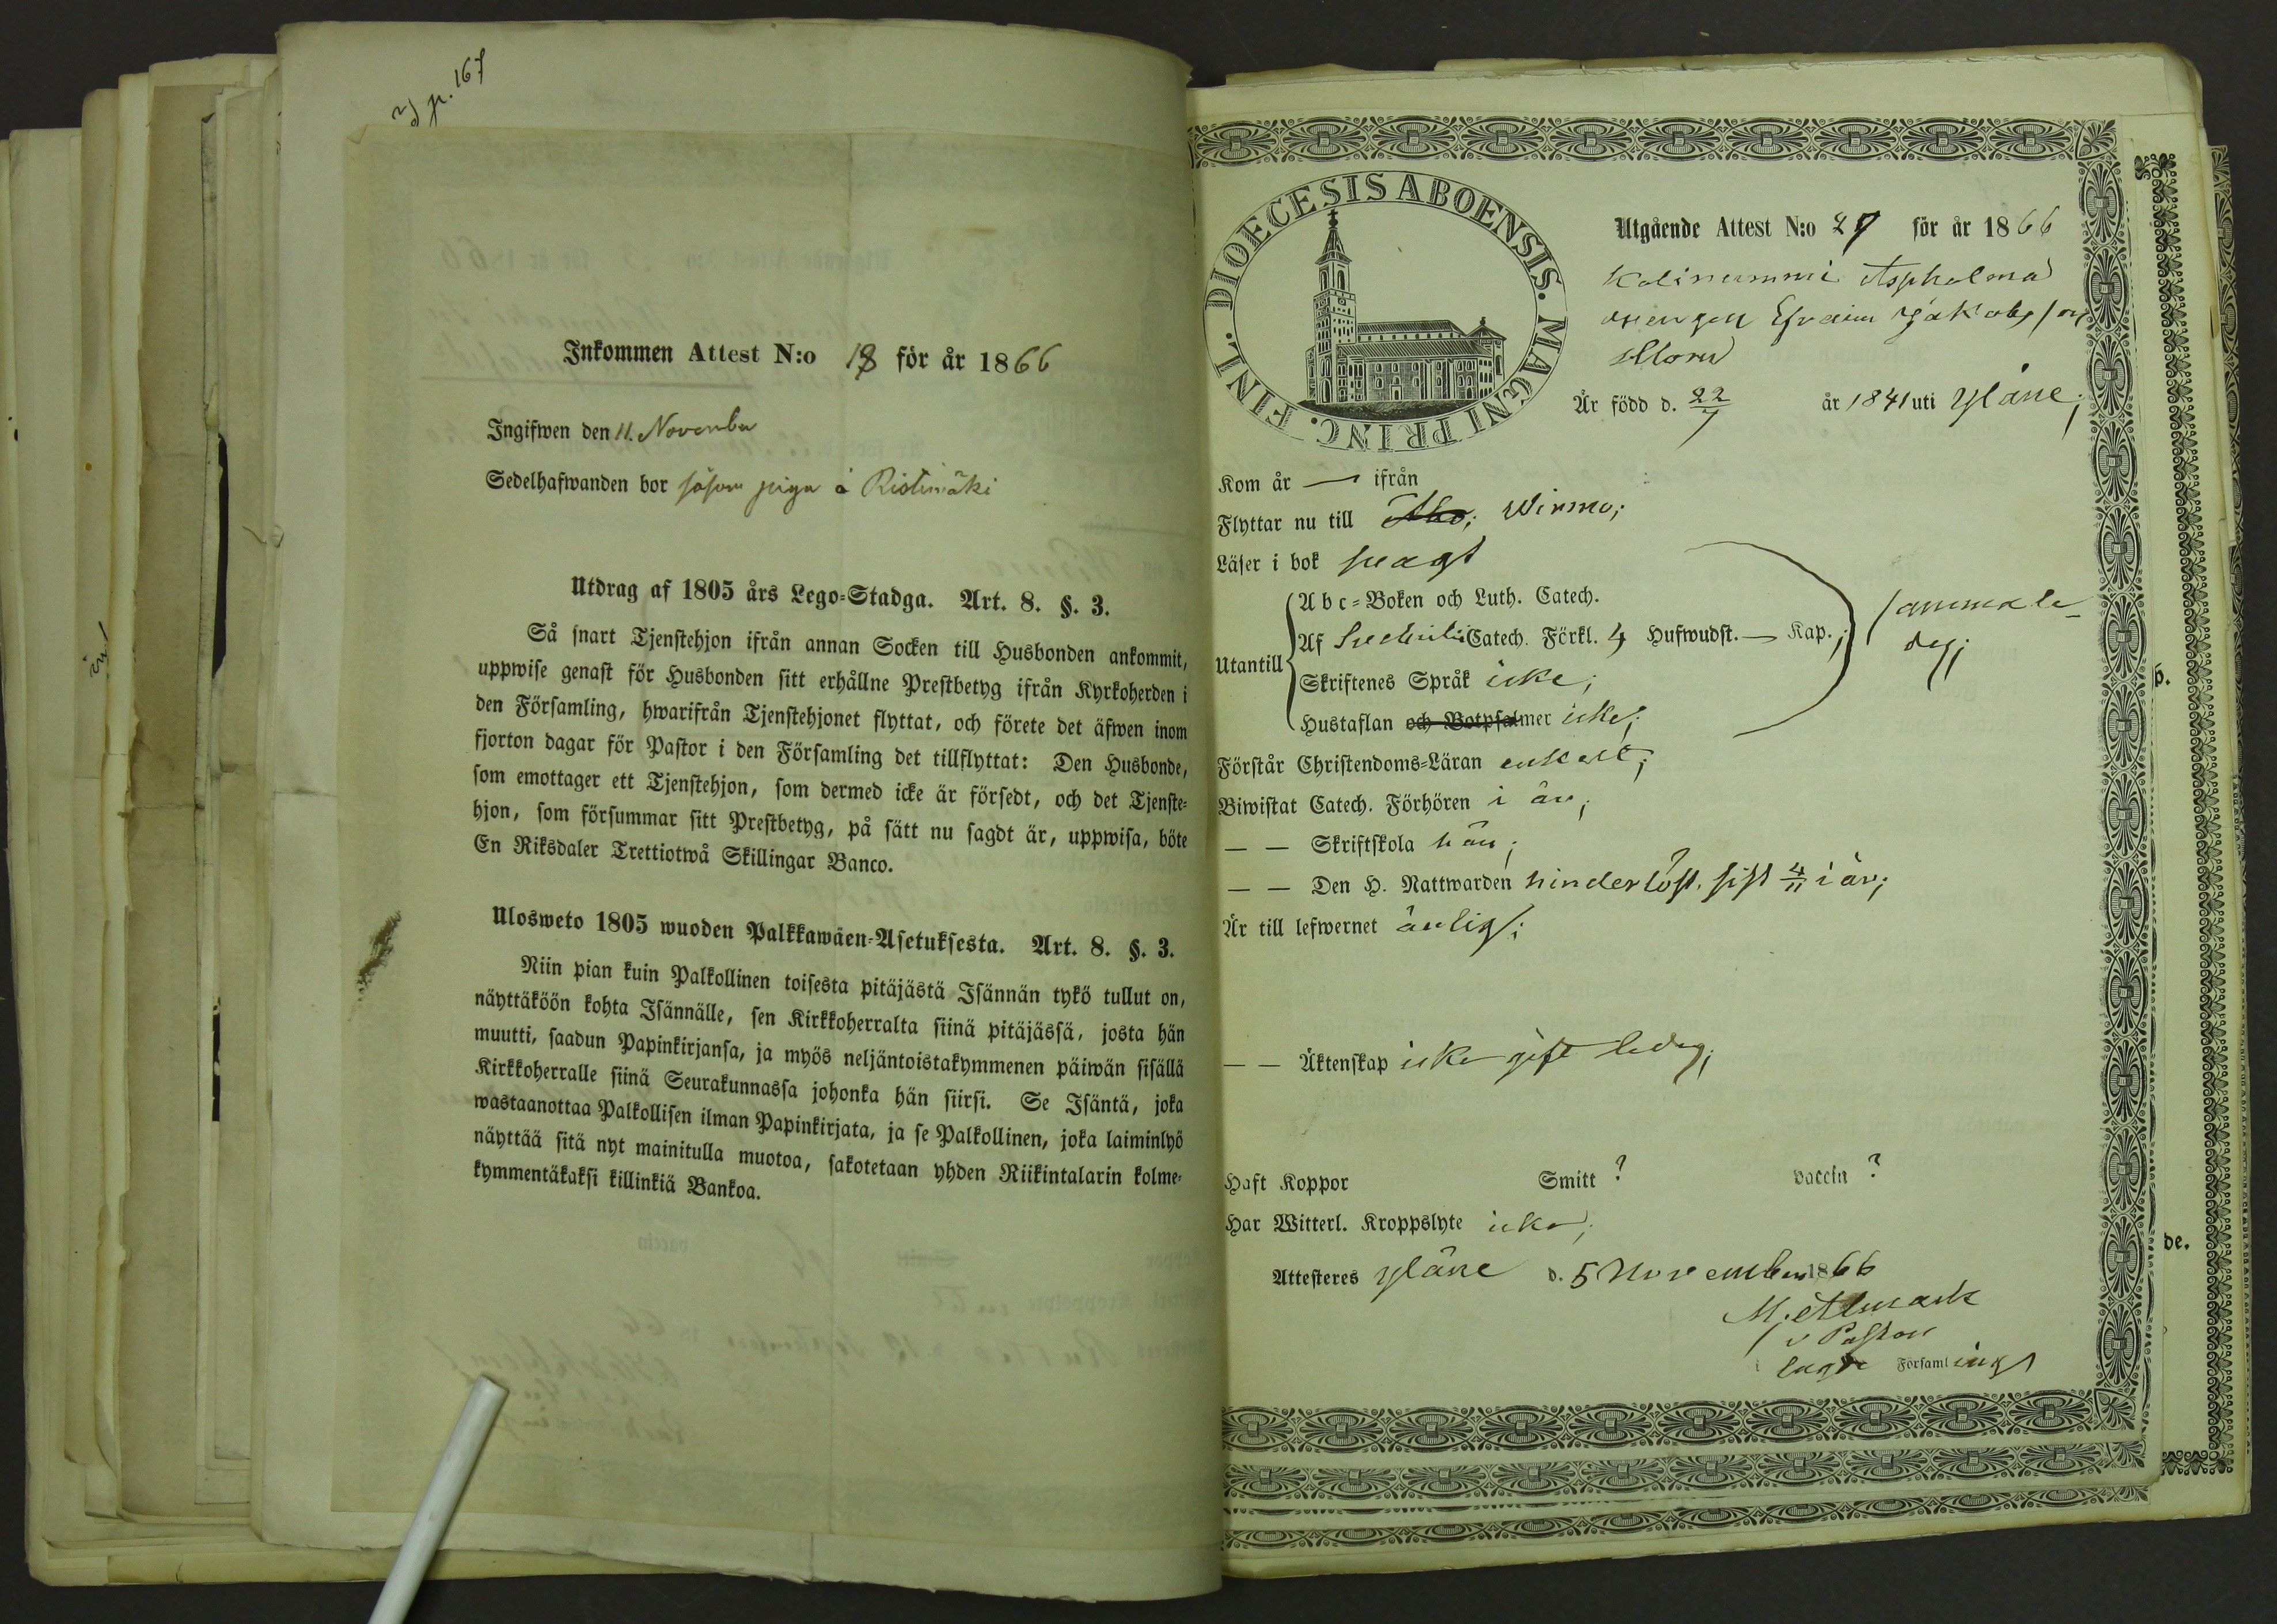 p. 167
Inkommen Attest N:o 18 för år 1866
Ingifwen den 11. November
Sedelhafwanden bor såsom piga å Ristimäki
Utdrag af 1805 års Lego-Stadga. Art. 8. §. 3.
Så snart Tjenstehjon ifrån annan Socken till Husbonden ankommit,
uppwise genast för Husbonden sitt erhållne Prestbetyg ifrån Kyrkoherden i
den Församling, hwarifrån Tjenstehjonet flyttat, och förete det äfwen inom
fjorton dagar för Pastor i den Församling det tillflyttat: Den Husbonde,
som emottager ett Tjenstehjon, som dermed icke är försedt, och det Tjenste-
hjon, som försummar sitt Prestbetyg, på sätt nu sagdt är, uppwisa, böte
En Riksdaler Trettiotwå Skillingar Banco.
Ulosweto 1805 wuoden Palkkawäen-Asetuksesta. Art. 8. §. 3.
Niin pian kuin Palkollinen toisesta pitäjästä Isännän tykö tullut on,
näyttäköön kohta Isännälle, sen Kirkkoherralta siinä pitäjässä, josta hän
muutti, saadun Papinkirjansa, ja myös neljäntoistakymmenen päiwän sisällä
Kirkkoherralle siinä Seurakunnassa johonka hän siirsi. Se Isäntä, joka
wastaanottaa Palkollisen ilman Papinkirjata, ja se Palkollinen, joka laiminlyö
näyttää sitä nyt mainitulla muotoa, sakotetaan yhden Riikintalarin kolme-
kymmentäkaksi killinkiä Bankoa.
DIOECESIS ABOENSIS. MAGNI PRINC. FINL.
Utgående Attest N:o 27 för år 1866
Kolinummi
drengen Efraim Jakobsson
Är född d. 22/7 år 1841 uti Yläne;
Kom år — ifrån
Flyttar nu till Åbo; Wirmo;
Läser i bok swagt
Abc-Boken och Luth. Catech.
Af Svebilii Catech. Förkl. 4 Hufwudst. — Kap.;
sammale-
des;
Utantill
Skriftenes Språk icke;
Hustaflan och Botpsalmer icke;
Förstår Christendoms-Läran enkelt;
Biwistat Catech. Förhören i år;
— — Skriftskola här;
— — Den H. Nattwarden hinderlöst. sist 4/11 i år;
Är till lefwernet ärlig;
— — Äktenskap icke gift ledig;
Haft Koppor Smitt ? vaccin ?
Har Witterl. Kroppslyte icke;
Attesteres Yläne d. 5 November 1866
M. Almark
v Pastor
Församlings
p.
de.